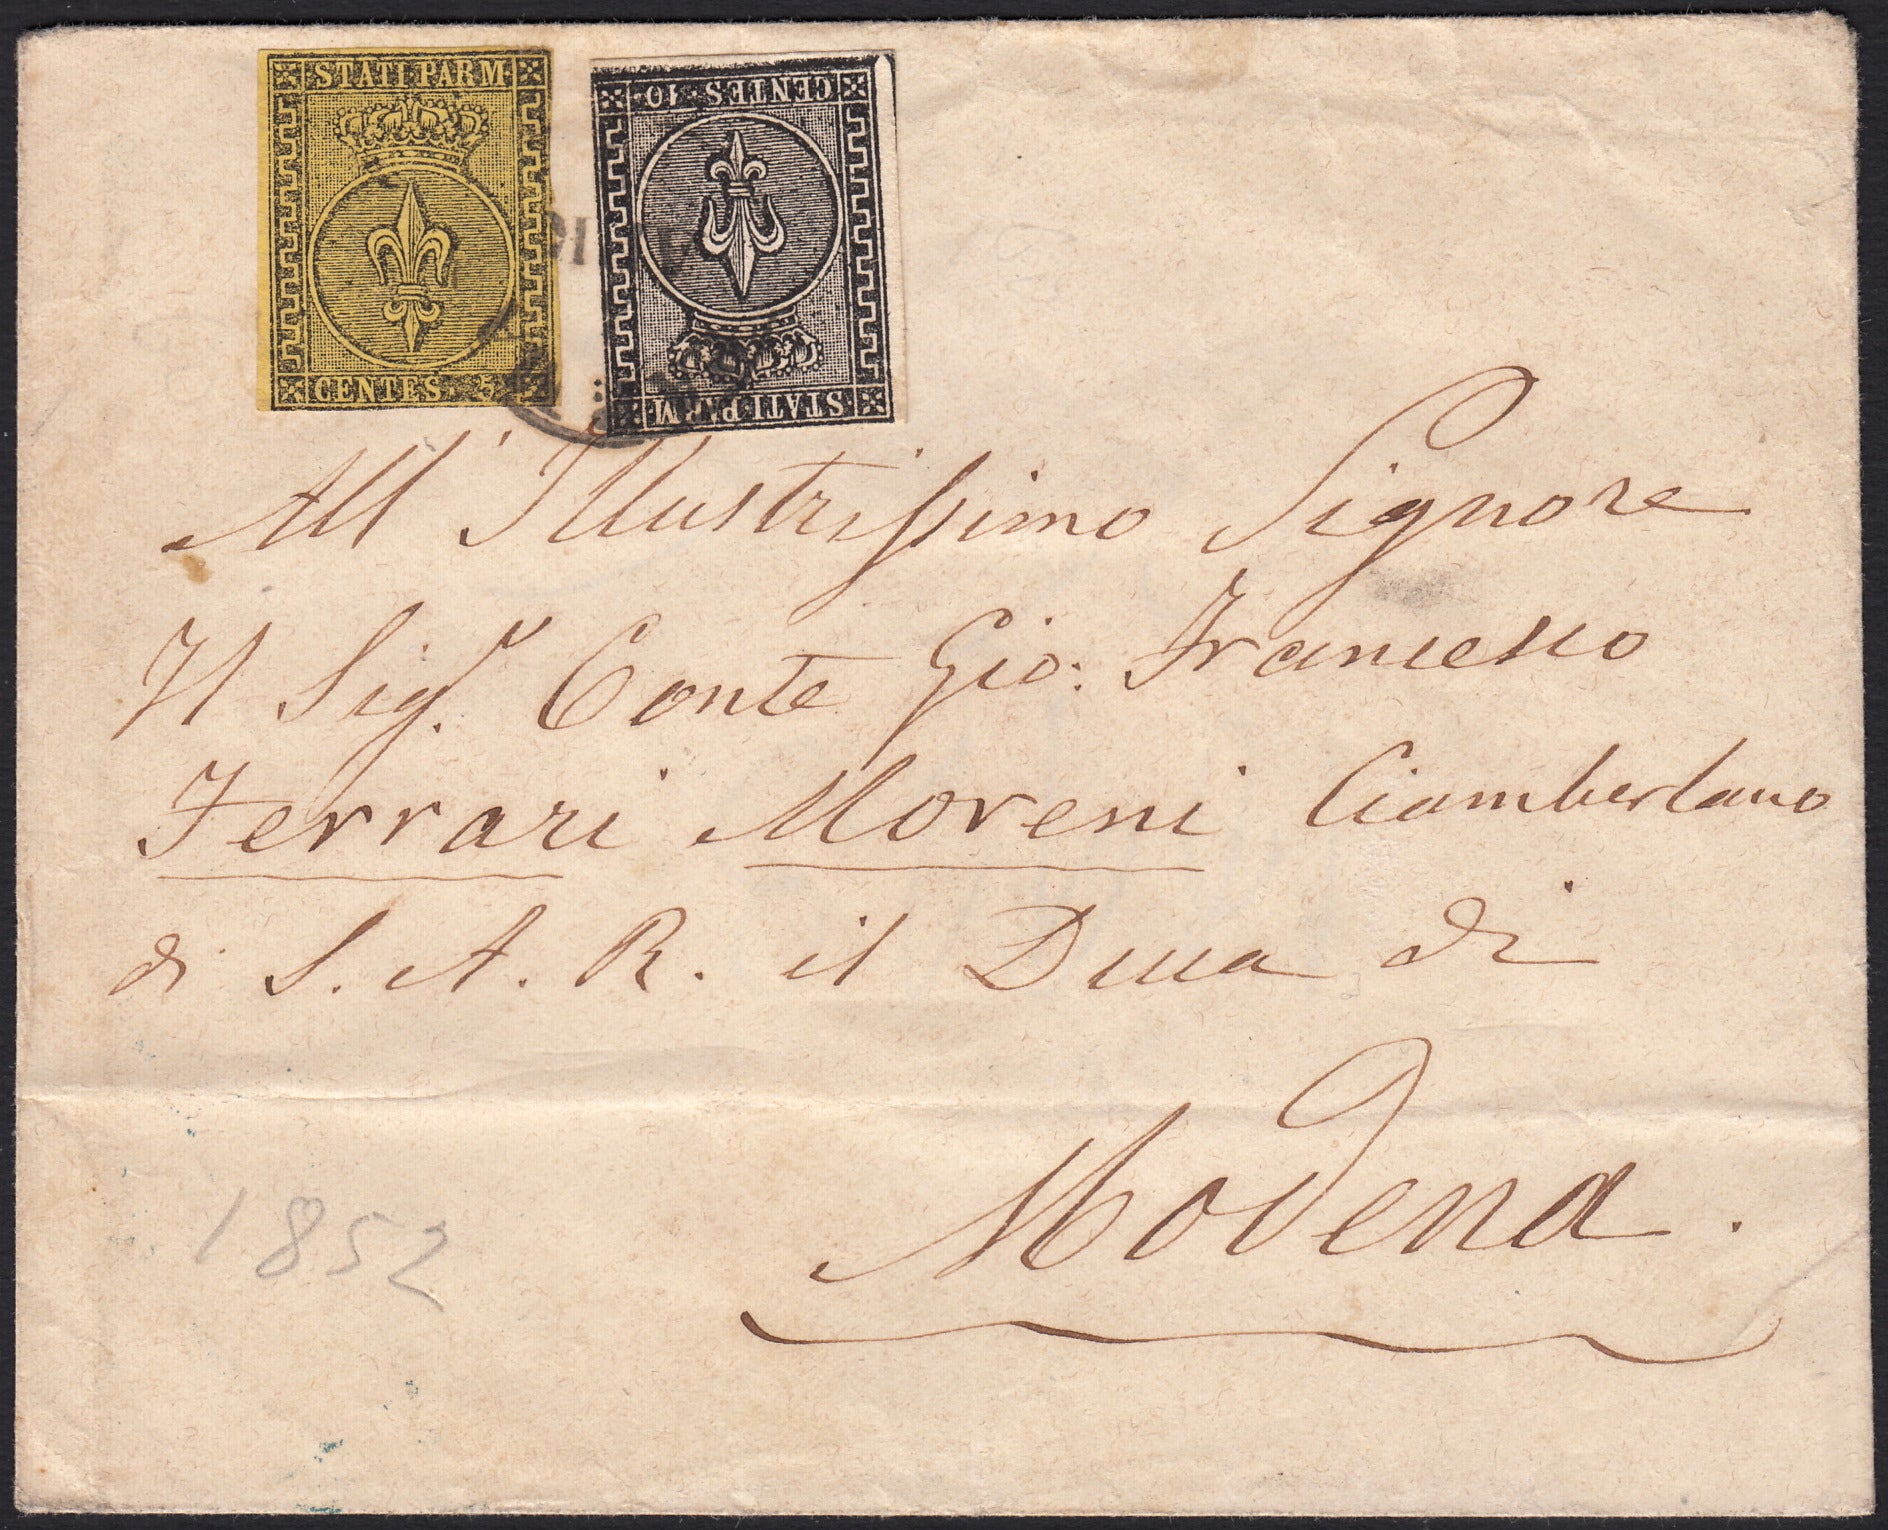 STATI PARM
CENTES. 5
CENTES. 10
STATI PARM
All' Illustrissimo Signore
Il Sigr. Conte Gio: Francesco
Ferrari Moreni Ciamberlano
di S. A. R. il Duca di
Modena.
1852